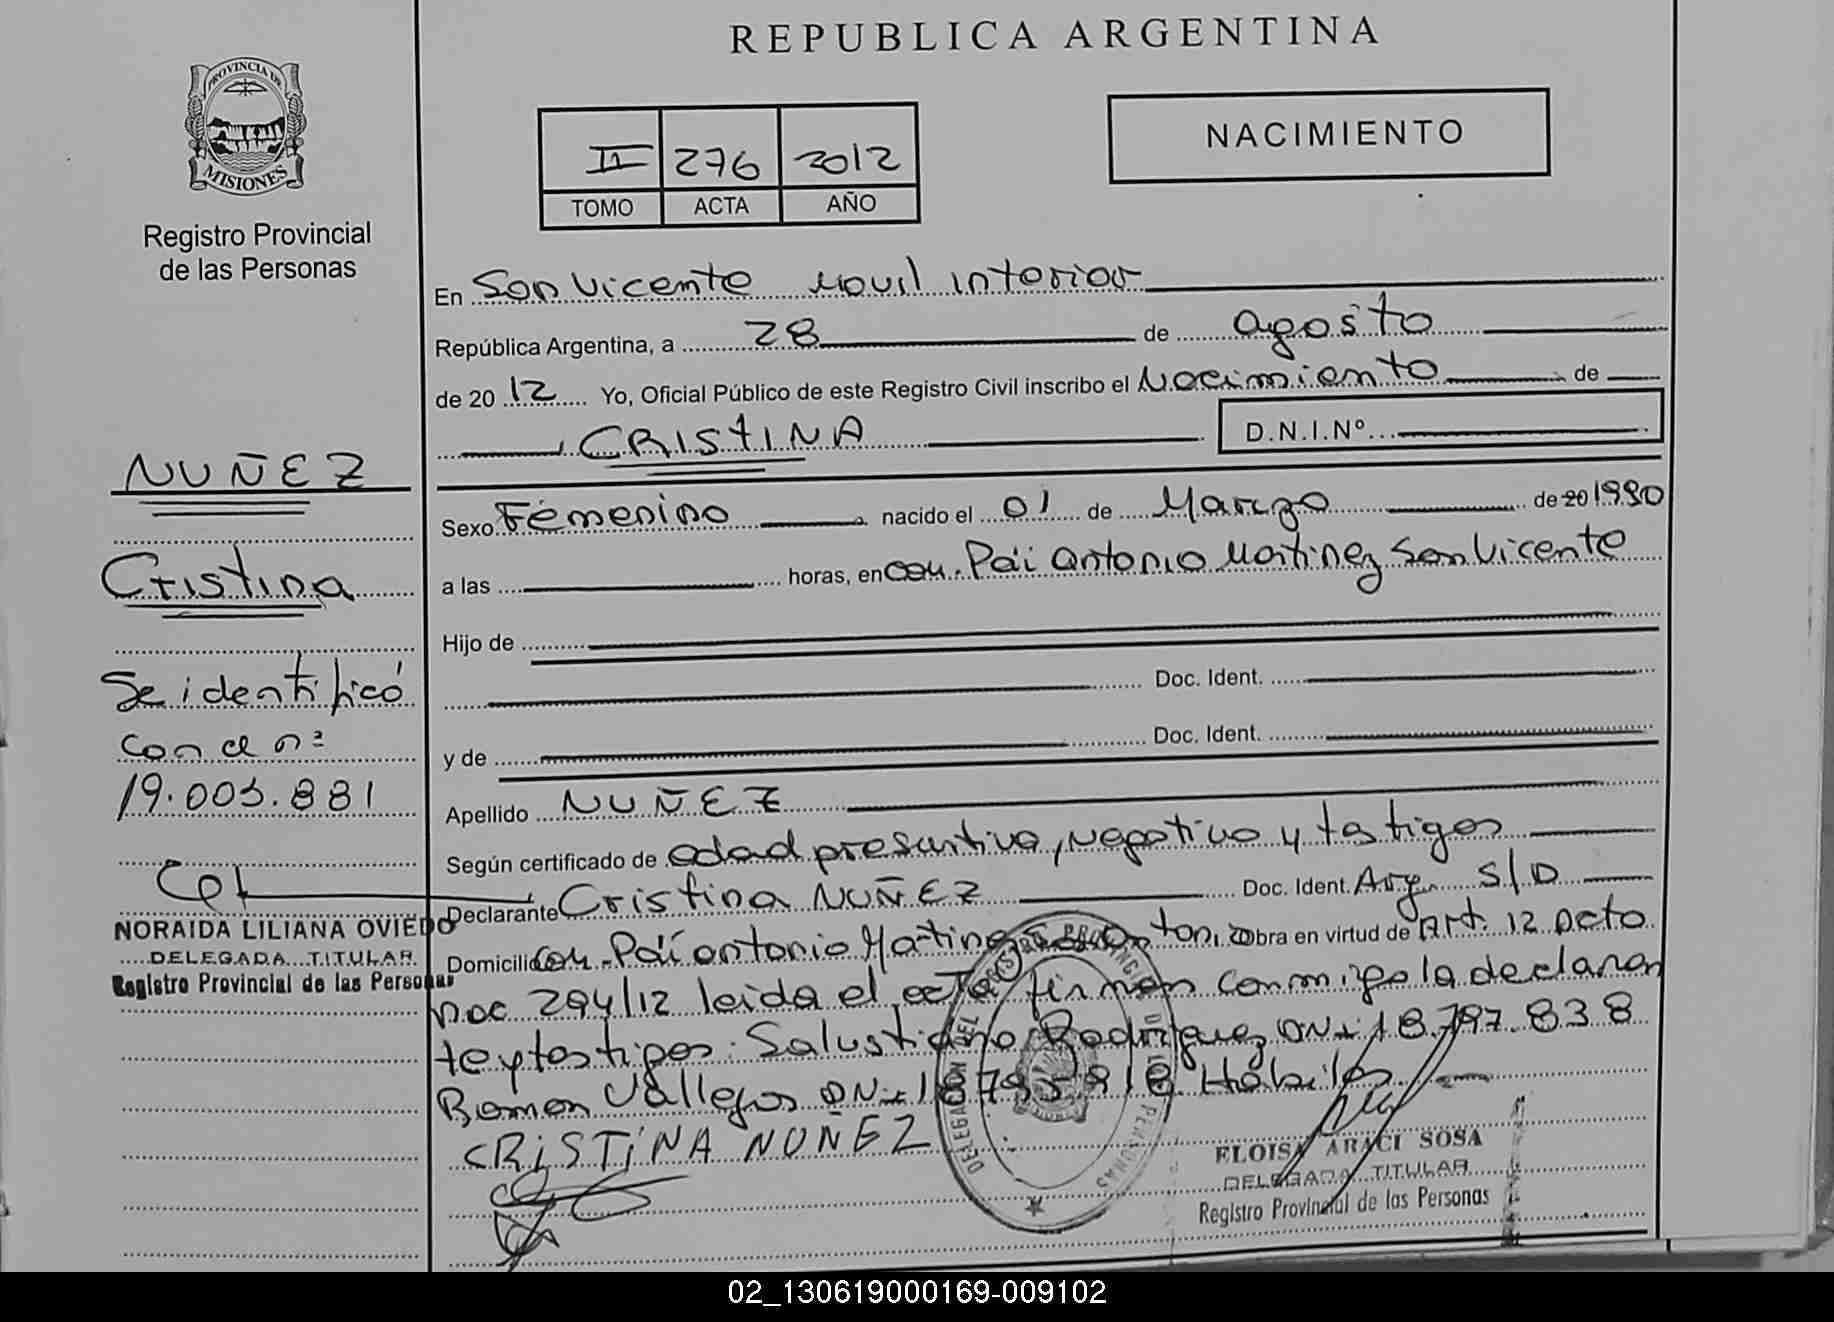 REPUBLICA ARGENTINA
PROVINCIA DE
MISIONES
Registro Provincial
de las Personas
II 276 2012
TOMO ACTA AÑO
NACIMIENTO
En San Vicente Movil interior
República Argentina, a 28 de agosto
de 20 12 Yo, Oficial Público de este Registro Civil inscribo el Nacimiento de
CRISTINA D.N.I.Nº
Sexo Femenino nacido el 01 de Marzo de 20 1990
a las horas, en Com. Pai Antonio Martinez San Vicente
Hijo de
Doc. Ident.
y de Doc. Ident.
Apellido NUÑEZ
Según certificado de edad presuntiva, negativo y testigos
Declarante Cristina NUÑEZ Doc. Ident. Arg. S/D
Domicilio Com. Pai antonio Martinez obra en virtud de Art. 12 Dcto
294/12 leida el acta firman conmigo la declaran
te y testigos: Salustiano Rodriguez DNI 18.797.838
Ramon Vallejos DNI Hábiles
CRiSTiNA NUÑEZ
ELOISA ARACI SOSA
DELEGADA TITULAR
Registro Provincial de las Personas
NUÑEZ
Cristina
Se identificó
con el nº
19.003.881
NORAIDA LILIANA OVIEDO
DELEGADA TITULAR
Registro Provincial de las Personas
02_130619000169-009102